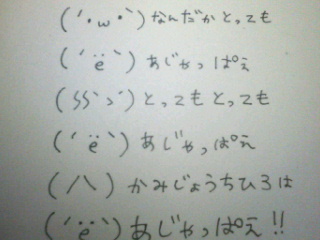 (´･ω･`)なんだかとっても
(´ё`)あじゃっぱぇ
(§§ ゝ゛)とってもとっても
(´ё`)あじゃっぱぇ
(八)かみじょうちひろは
(´ё`)あじゃっぱぇ!!